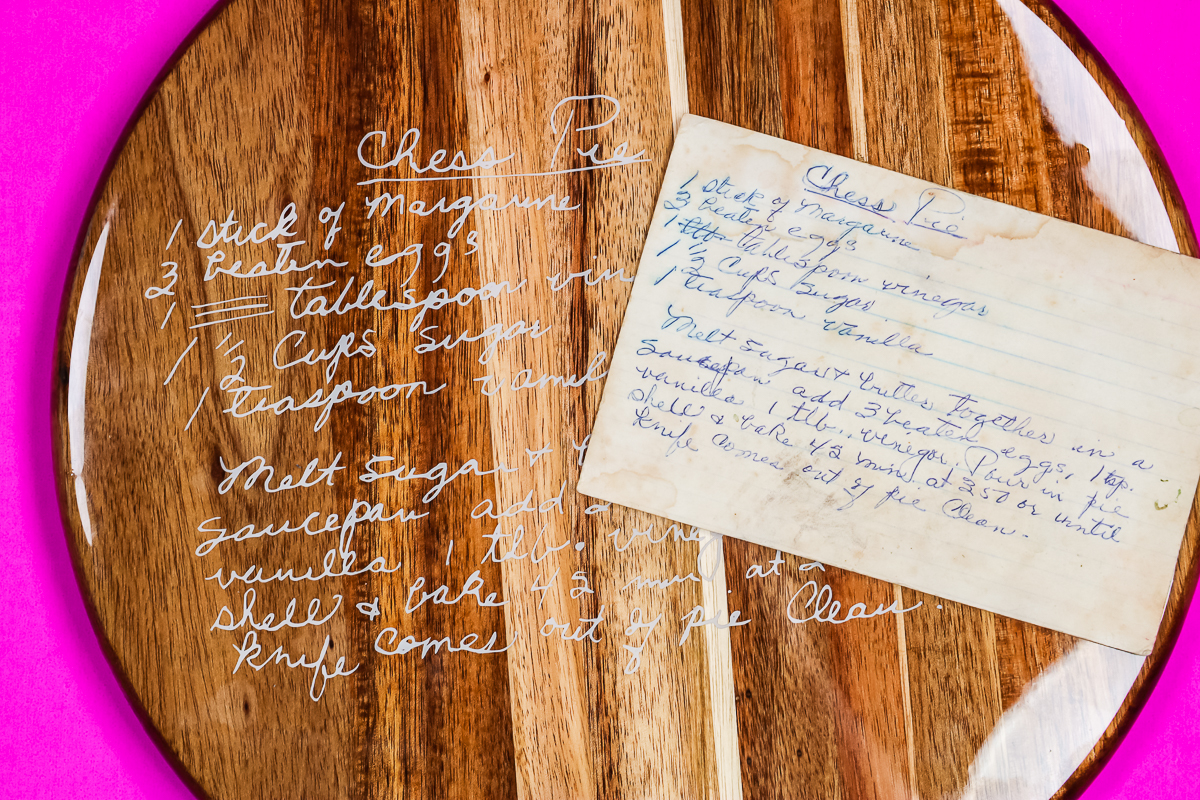 Chess Pie
1 stick of Margarine
3 beaten eggs
1 tablespoon vin
1 1/2 Cups Sugar
1 teaspoon vanil
Melt Sugar &
Saucepan add
vanilla 1 tlb. vine
shell & bake 45 min at
knife comes out of pie Clean.
Chess Pie
1 stick of Margarine
3 beaten eggs
1 tablespoon vinegar
1 1/2 Cups Sugar
1 teaspoon vanilla
Melt Sugar & butter together in a
Saucepan add 3 beaten eggs, 1 tsp.
vanilla 1 tlb. vinegar. Pour in pie
shell & bake 45 min. at 350 or until
knife comes out of pie Clean.